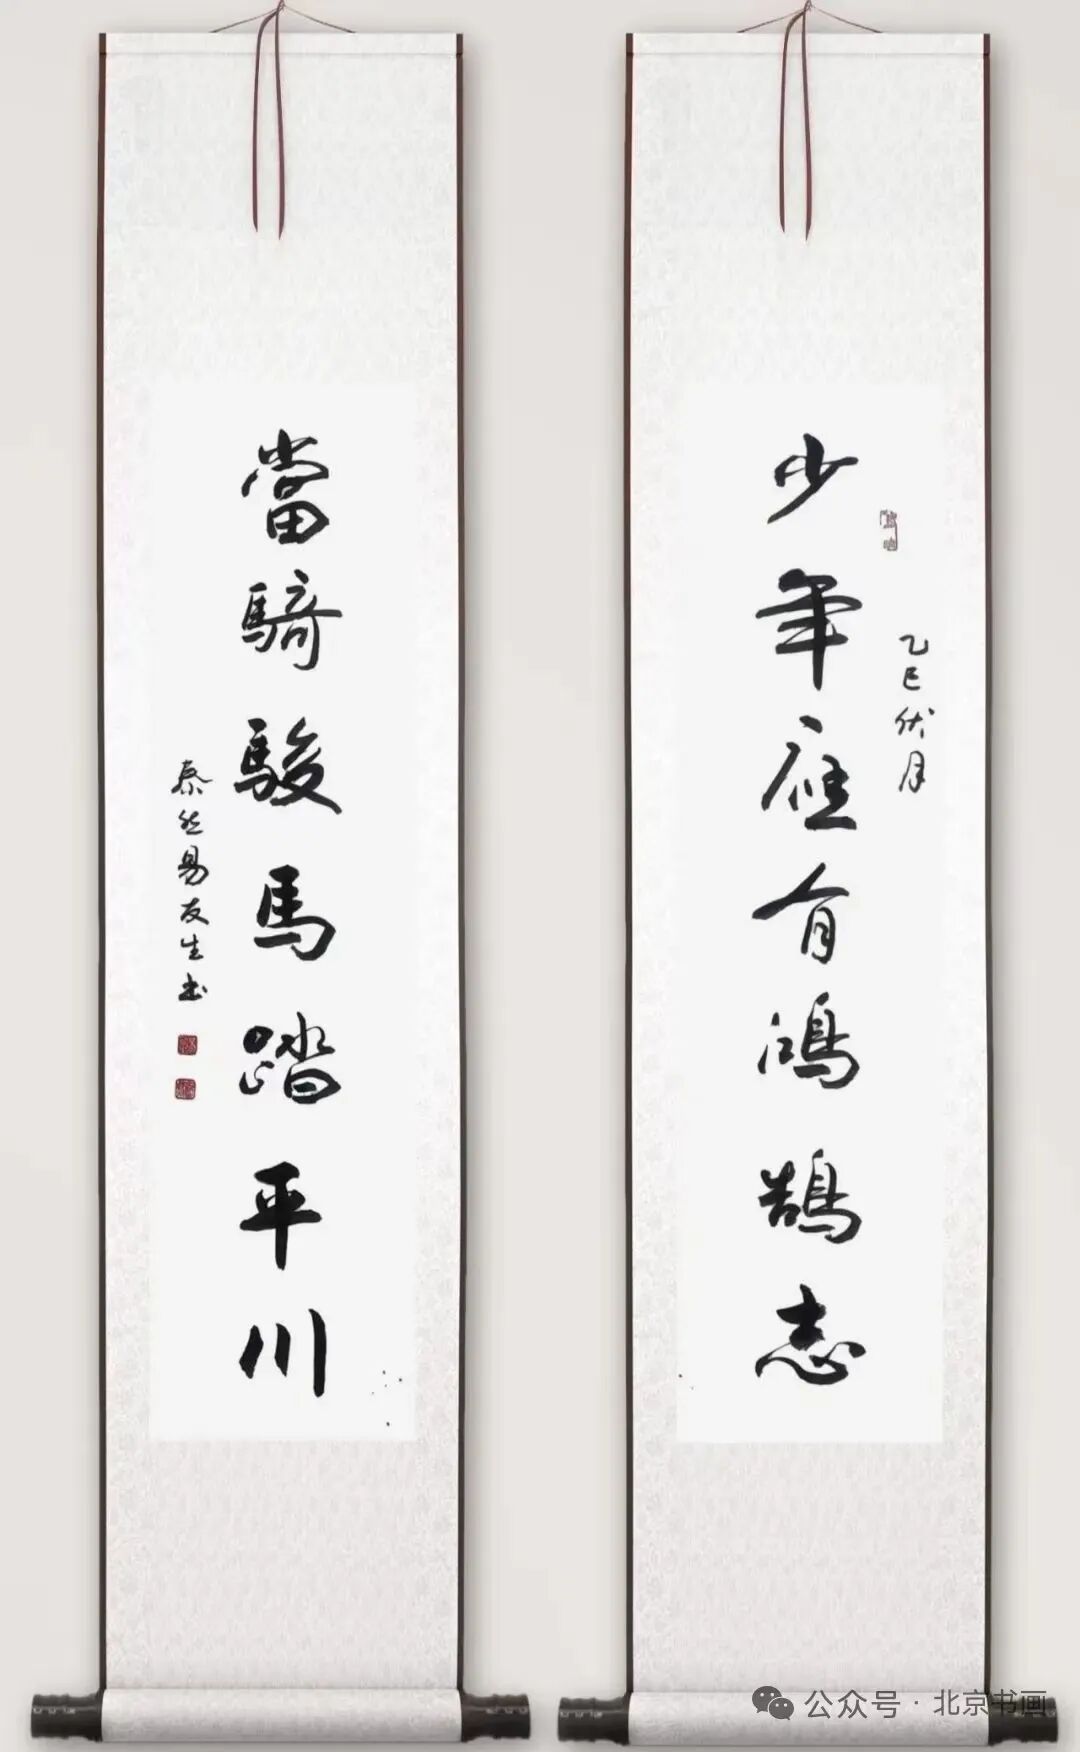 少年应有鸿鹄志
乙巳伏月
當騎駿馬踏平川
泰然易友生书
公众号 · 北京书画